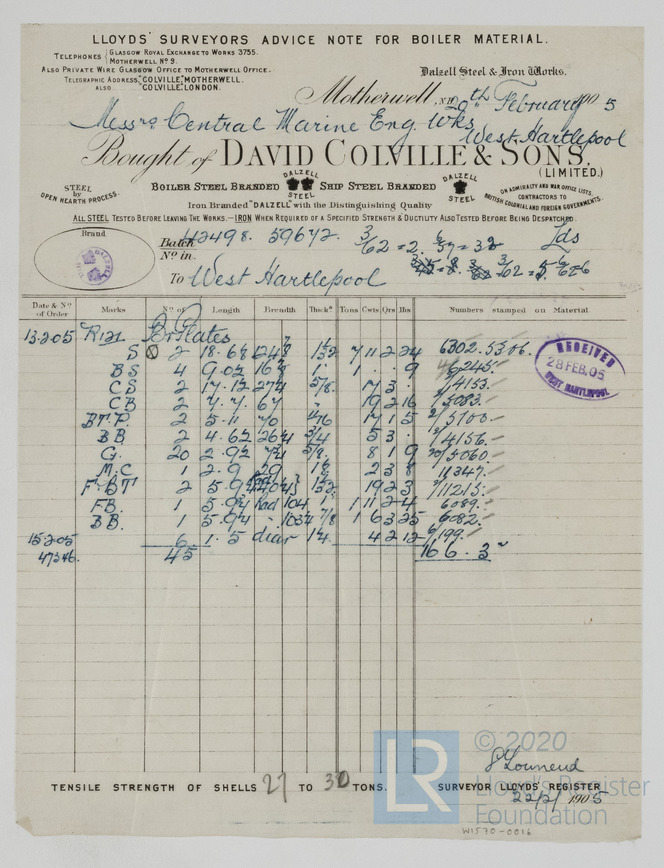 LLOYDS' SURVEYORS ADVICE NOTE FOR BOILER MATERIAL.
TELEPHONES { GLASGOW ROYAL EXCHANGE TO WORKS 3755.
MOTHERWELL Nº 9.
ALSO PRIVATE WIRE GLASGOW OFFICE TO MOTHERWELL OFFICE.
TELEGRAPHIC ADDRESS, "COLVILLE," MOTHERWELL.
ALSO "COLVILLE," LONDON.
Dalzell Steel & Iron Works.
Motherwell, 20th February 1905
Messrs Central Marine Eng. Wks
West Hartlepool
Bought of DAVID COLVILLE & SONS.
(LIMITED.)
STEEL by OPEN HEARTH PROCESS.
BOILER STEEL BRANDED DALZELL STEEL SHIP STEEL BRANDED DALZELL STEEL
ON ADMIRALTY AND WAR OFFICE LISTS.
CONTRACTORS TO
BRITISH, COLONIAL AND FOREIGN GOVERNMENTS.
Iron Branded "DALZELL" with the Distinguishing Quality
ALL STEEL TESTED BEFORE LEAVING THE WORKS.—IRON WHEN REQUIRED OF A SPECIFIED STRENGTH & DUCTILITY ALSO TESTED BEFORE BEING DESPATCHED.
Brand
Batch 42498. 59672.
Nº in.
To West Hartlepool
Date & Nº of Order Marks Nº of Length Breadth Thickˢ Tons Cwts Qrs lbs Numbers stamped on Material
13.2.05 R121 Br Plates
S 2 7 11 2 24 6302.5306.
B S 4 6245.
C S 2 5/8 17 3 4153.
C B 2 7.7 67 19 2 16 5083.
B T. P. 2 5.11 70 17 1 5 5700
B B 2 4.62 3/4 5 3 4156.
G. 20 2.92 5/8 8 1 9 5060
M.C 1 2.9 29 2 3 8 11347.
F. BT 2 19 2 3 11215.
F B. 1 5.94 Rad 104 1 11 2 4 6089.
B B. 1 5.94 7/8 1 6 3 25 6082.
15.2.05 6 1.5 diar 1¼ 4 2 12 6/199.
47346. 45 16 6. 3
RECEIVED
28 FEB. 05
WEST HARTLEPOOL
TENSILE STRENGTH OF SHELLS 27 TO 30 TONS.
SURVEYOR LLOYDS REGISTER
22/2/1905
LR
© 2020
Lloyd's Register
Foundation
W1570-0016